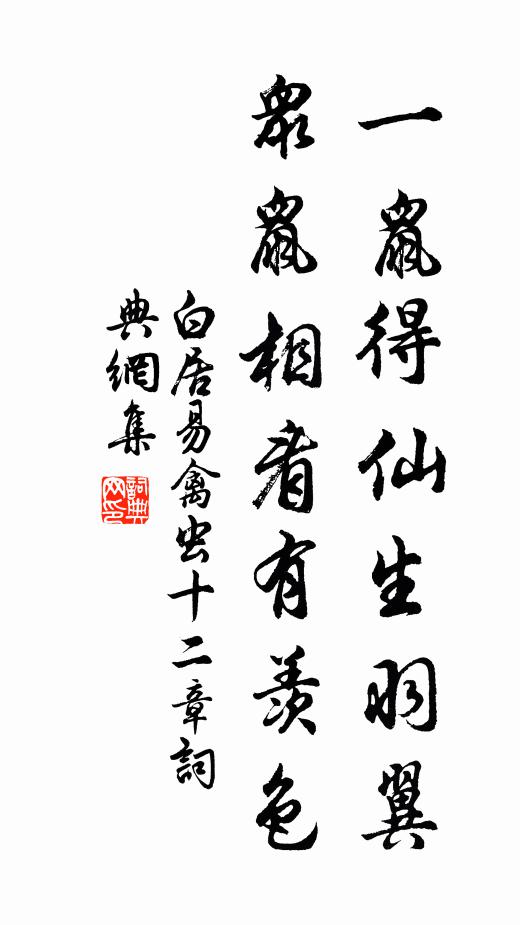 一鼠得仙生羽翼
眾鼠相看有羨色
白居易禽虫十二章詞
典網集
詞典
网印